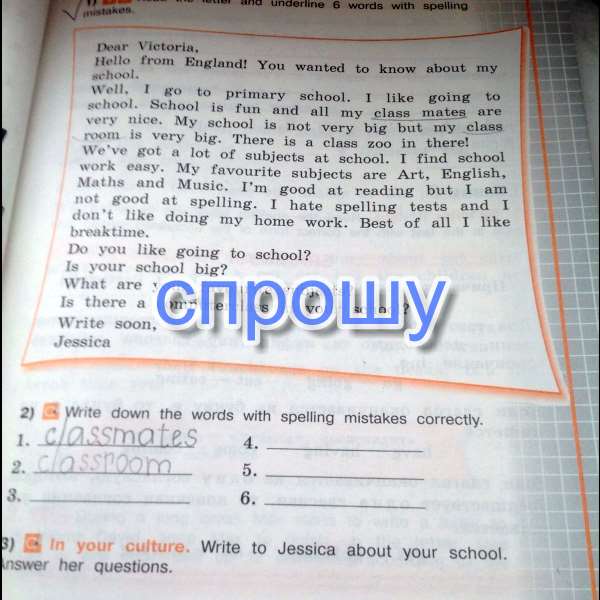 1) Read the letter and underline 6 words with spelling
mistakes.
Dear Victoria,
Hello from England! You wanted to know about my
school.
Well, I go to primary school. I like going to
school. School is fun and all my class mates are
very nice. My school is not very big but my class
room is very big. There is a class zoo in there!
We've got a lot of subjects at school. I find school
work easy. My favourite subjects are Art, English,
Maths and Music. I'm good at reading but I am
not good at spelling. I hate spelling tests and I
don't like doing my home work. Best of all I like
breaktime.
Do you like going to school?
Is your school big?
What are
Is there a
спрошу
Write soon,
Jessica
2) Write down the words with spelling mistakes correctly.
1. classmates 4.
2. classroom 5.
3. 6.
3) In your culture. Write to Jessica about your school.
Answer her questions.